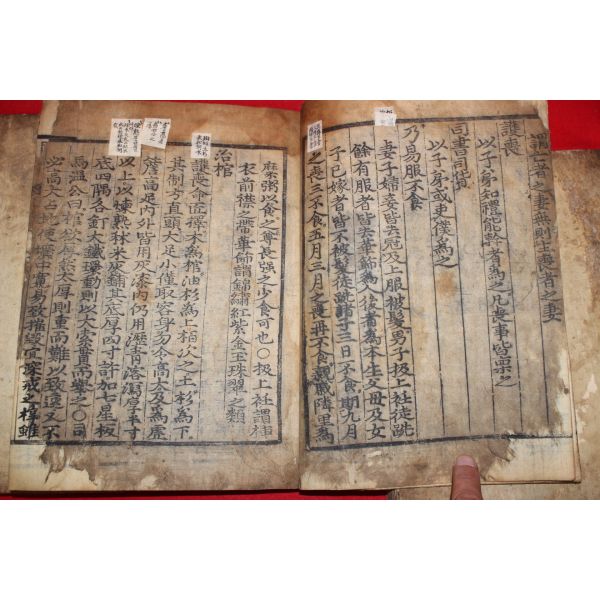 謂亡者之妻無則主喪者之妻
護喪
以子弟知禮能幹者爲之凡喪事皆稟之
司書司貨
以子弟或吏僕爲之
乃易服不食
妻子婦妾皆去冠及上服被髮男子扱上衽徒跣
餘有服者皆去華飾爲人後者爲本生父母及女
子已嫁者皆不被髮徒跣諸子三日不食期九月
之喪三不食五月三月之喪再不食親戚隣里爲
糜粥以食之尊長强之少食可也○扱上衽謂揷
衣前襟之帶華飾謂錦繡紅紫金玉珠翠之類
治棺
護喪命匠擇木爲棺油杉爲上栢次之土杉爲下
其制方直頭大足小僅取容身勿令高大及爲虛
簷高足內外皆用灰漆內仍用瀝青溶瀉厚半寸
以上以煉熟秫米灰鋪其底厚四寸許加七星板
底四隅各釘大鐵環動則以大索貫而擧之○司
馬溫公曰棺欲厚然太厚則重而難以致遠又不
必高大占地使壙中寬易致摧毁宜深戒之椁雖